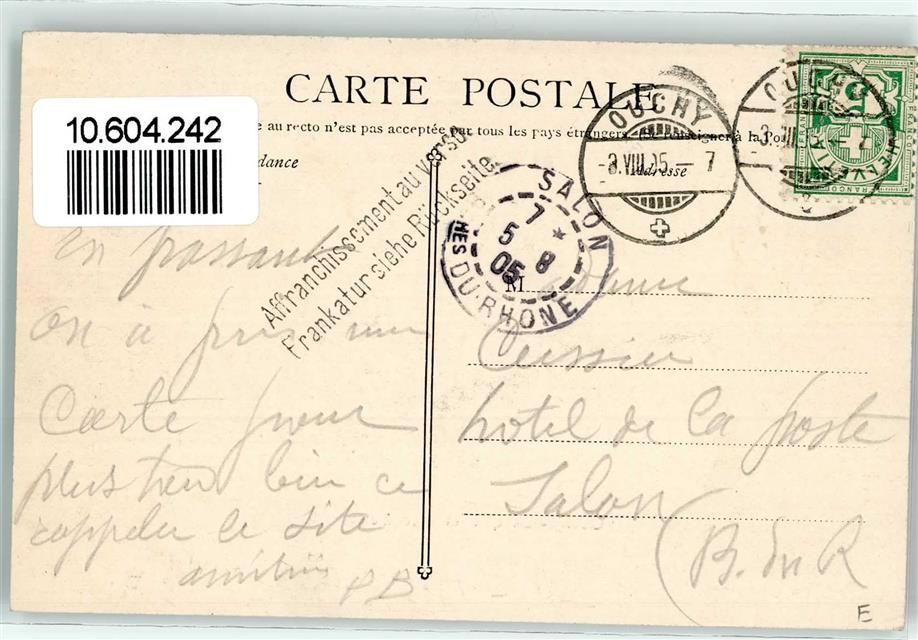 CARTE POSTALE
10.604.242
e au recto n'est pas acceptée par tous les pays étrangers. (Se renseigner à la Po
dance
Adresse
Affranchissement au verso
Frankatur siehe Rückseite
OUCHY
-3.VIII.05.-7
OUCHY
3.VIII.05.-7
HELVETIA
FRANCO
5
SALON
7
5 8
05
NES DU RHONE
En passant
on a pris une
Carte pour
plus tard bien ce
rappeler ce site
amitiés
PB
Madame
Cussier
hotel de la poste
Salon
(B. du R
E